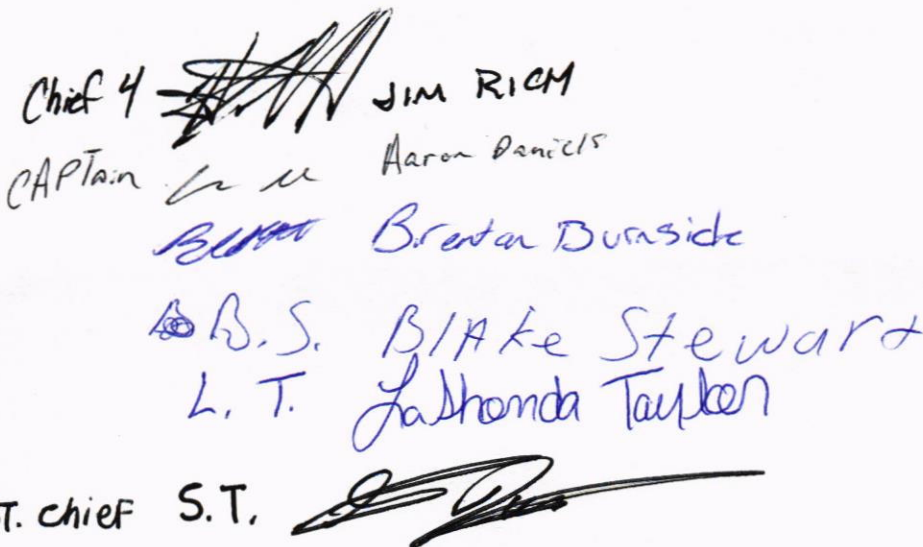 Chief 4 JIM RICH
CAPTain Aaron Daniels
Brenton Burnside
B.S. BlAke Stewart
L. T. LaShonda Taylor
T. chief S.T.